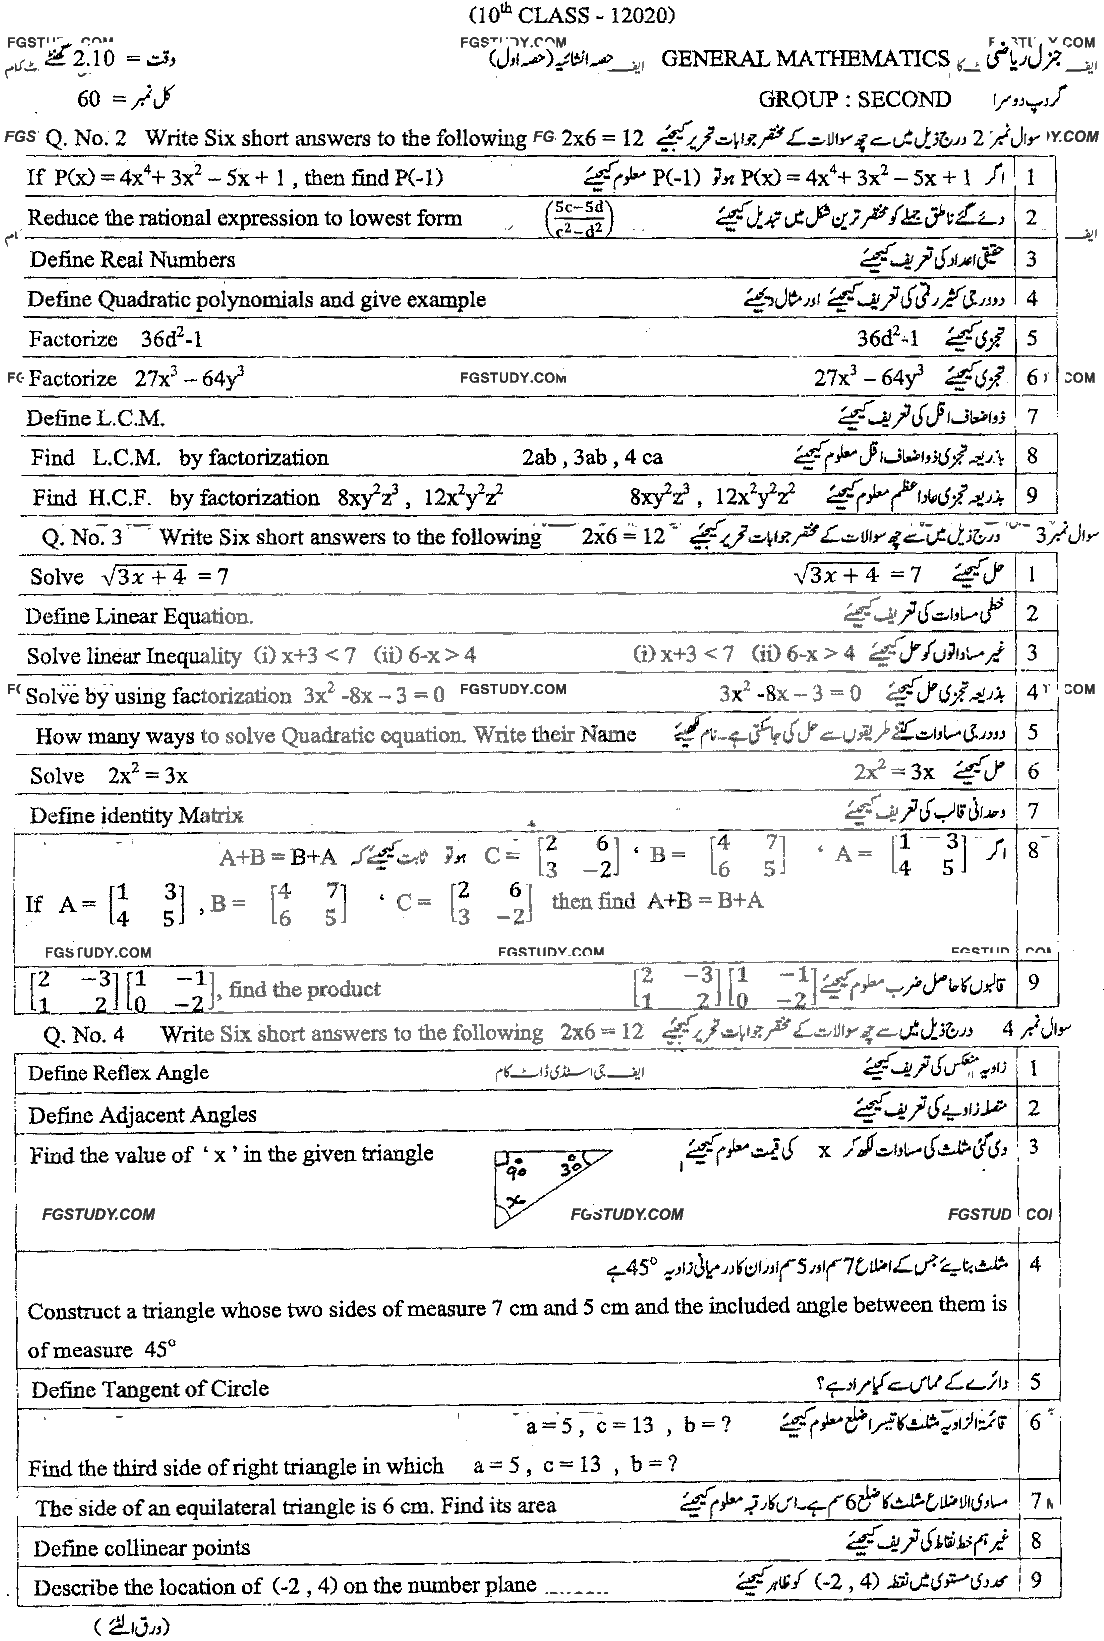 (10th CLASS - 12020)
FGSTUDY.COM
وقت = 2.10 گھنٹے حصہ انشائیہ (حصہ اول) GENERAL MATHEMATICS جنرل ریاضی
کل نمبر = 60 GROUP : SECOND گروپ دوسرا
Q. No. 2 Write Six short answers to the following 2x6 = 12 سوال نمبر 2 درج ذیل میں سے چھ سوالات کے مختصر جوابات تحریر کیجئیے
If P(x) = 4x⁴+ 3x² – 5x + 1 , then find P(-1) اگر P(x) = 4x⁴+ 3x² – 5x + 1 ہو تو P(-1) معلوم کیجئیے 1
Reduce the rational expression to lowest form (5c–5d / c²–d²) دئے گئے ناطق جملے کو مختصر ترین شکل میں تبدیل کیجئیے 2
Define Real Numbers حقیقی اعداد کی تعریف کیجئیے 3
Define Quadratic polynomials and give example دو درجی کثیر رقمی کی تعریف کیجئیے اور مثال دیجئیے 4
Factorize 36d²-1 تجزی کیجئیے 36d²-1 5
Factorize 27x³ – 64y³ FGSTUDY.COM تجزی کیجئیے 27x³ – 64y³ 6
Define L.C.M. ذواضعاف اقل کی تعریف کیجئیے 7
Find L.C.M. by factorization 2ab , 3ab , 4 ca بذریعہ تجزی ذواضعاف اقل معلوم کیجئیے 8
Find H.C.F. by factorization 8xy²z³ , 12x²y²z² بذریعہ تجزی عاد اعظم معلوم کیجئیے 8xy²z³ , 12x²y²z² 9
Q. No. 3 Write Six short answers to the following 2x6 = 12 سوال نمبر 3 درج ذیل میں سے چھ سوالات کے مختصر جوابات تحریر کیجئیے
Solve √(3x + 4) = 7 حل کیجئیے √(3x + 4) = 7 1
Define Linear Equation. خطی مساوات کی تعریف کیجئیے 2
Solve linear Inequality (i) x+3 < 7 (ii) 6-x > 4 غیر مساداتوں کو حل کیجئیے (i) x+3 < 7 (ii) 6-x > 4 3
Solve by using factorization 3x² -8x – 3 = 0 FGSTUDY.COM بذریعہ تجزی حل کیجئیے 3x² -8x – 3 = 0 4
How many ways to solve Quadratic equation. Write their Name دو درجی مساوات کتنے طریقوں سے حل کی جا سکتی ہے۔ نام لکھئیے 5
Solve 2x² = 3x حل کیجئیے 2x² = 3x 6
Define identity Matrix وحدانی قالب کی تعریف کیجئیے 7
اگر A = [1 3; 4 5] ، B = [4 7; 6 5] ، C = [2 6; 3 –2] ہو تو ثابت کیجئیے کہ A+B = B+A 8
If A = [1 3; 4 5] , B = [4 7; 6 5] ، C = [2 6; 3 –2] then find A+B = B+A
FGSTUDY.COM FGSTUDY.COM
[2 –3; 1 2] [1 –1; 0 –2], find the product قالبوں کا حاصل ضرب معلوم کیجئیے [2 –3; 1 2] [1 –1; 0 –2] 9
Q. No. 4 Write Six short answers to the following 2x6 = 12 سوال نمبر 4 درج ذیل میں سے چھ سوالات کے مختصر جوابات تحریر کیجئیے
Define Reflex Angle ایف جی اسٹڈی ڈاٹ کام زاویہ منعکس کی تعریف کیجئیے 1
Define Adjacent Angles متصلہ زاویے کی تعریف کیجئیے 2
Find the value of ‘ x ’ in the given triangle دی گئی مثلث کی مساوات لکھ کر x کی قیمت معلوم کیجئیے 3
90° 30°
x
FGSTUDY.COM FGSTUDY.COM
مثلث بنایئے جس کے اضلاع 7 سم اور 5 سم اور ان کا درمیانی زاویہ 45° ہے 4
Construct a triangle whose two sides of measure 7 cm and 5 cm and the included angle between them is
of measure 45°
Define Tangent of Circle دائرے کے مماس سے کیا مراد ہے؟ 5
قائمۃ الزاویہ مثلث کا تیسرا ضلع معلوم کیجئیے a = 5 , c = 13 , b = ? 6
Find the third side of right triangle in which a = 5 , c = 13 , b = ?
The side of an equilateral triangle is 6 cm. Find its area مساوی الاضلاع مثلث کا ضلع 6 سم ہے۔ اس کا رقبہ معلوم کیجئیے 7
Define collinear points غیر ہم خط نقاط کی تعریف کیجئیے 8
Describe the location of (-2 , 4) on the number plane ......... عددی مستوی میں نقطہ (-2 , 4) کو ظاہر کیجئیے 9
(ورق الٹئے)